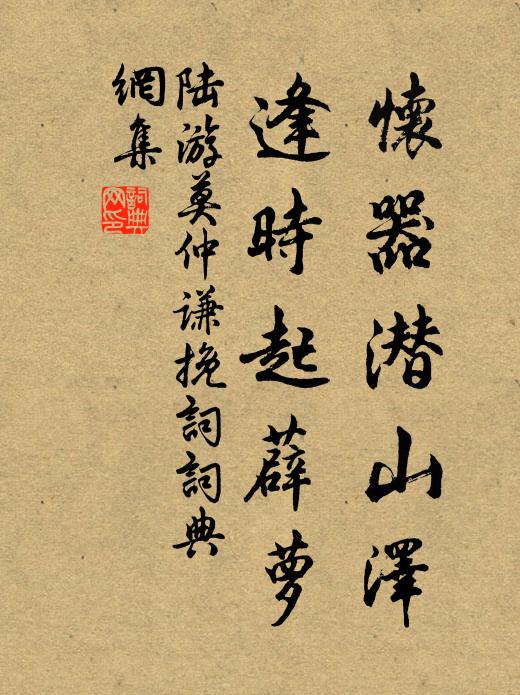 懷器潜山澤
逢時起薜蘿
陆游莫仲谦挽詞詞典
網集
詞典
网印